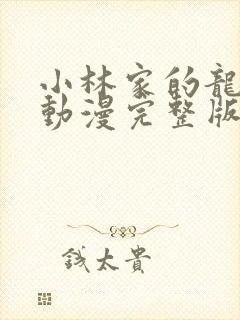 小林家的龍
動漫完整版
錢太貴